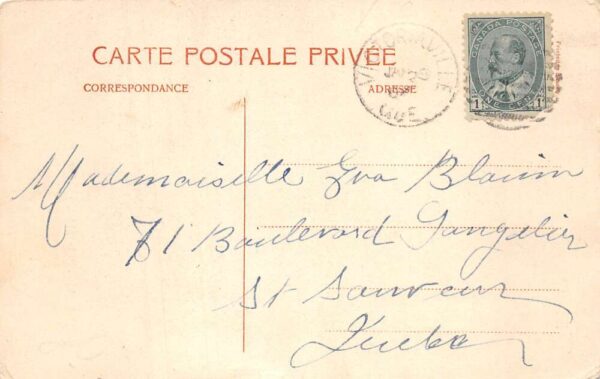 CARTE POSTALE PRIVÉE
CORRESPONDANCE
ADRESSE
VICTORIAVILLE
QUE
CANADA POSTAGE
1 ONE CENT 1
Mademoiselle Eva Blouin
71 Boulevard Langelier
St Sauveur
Quebec